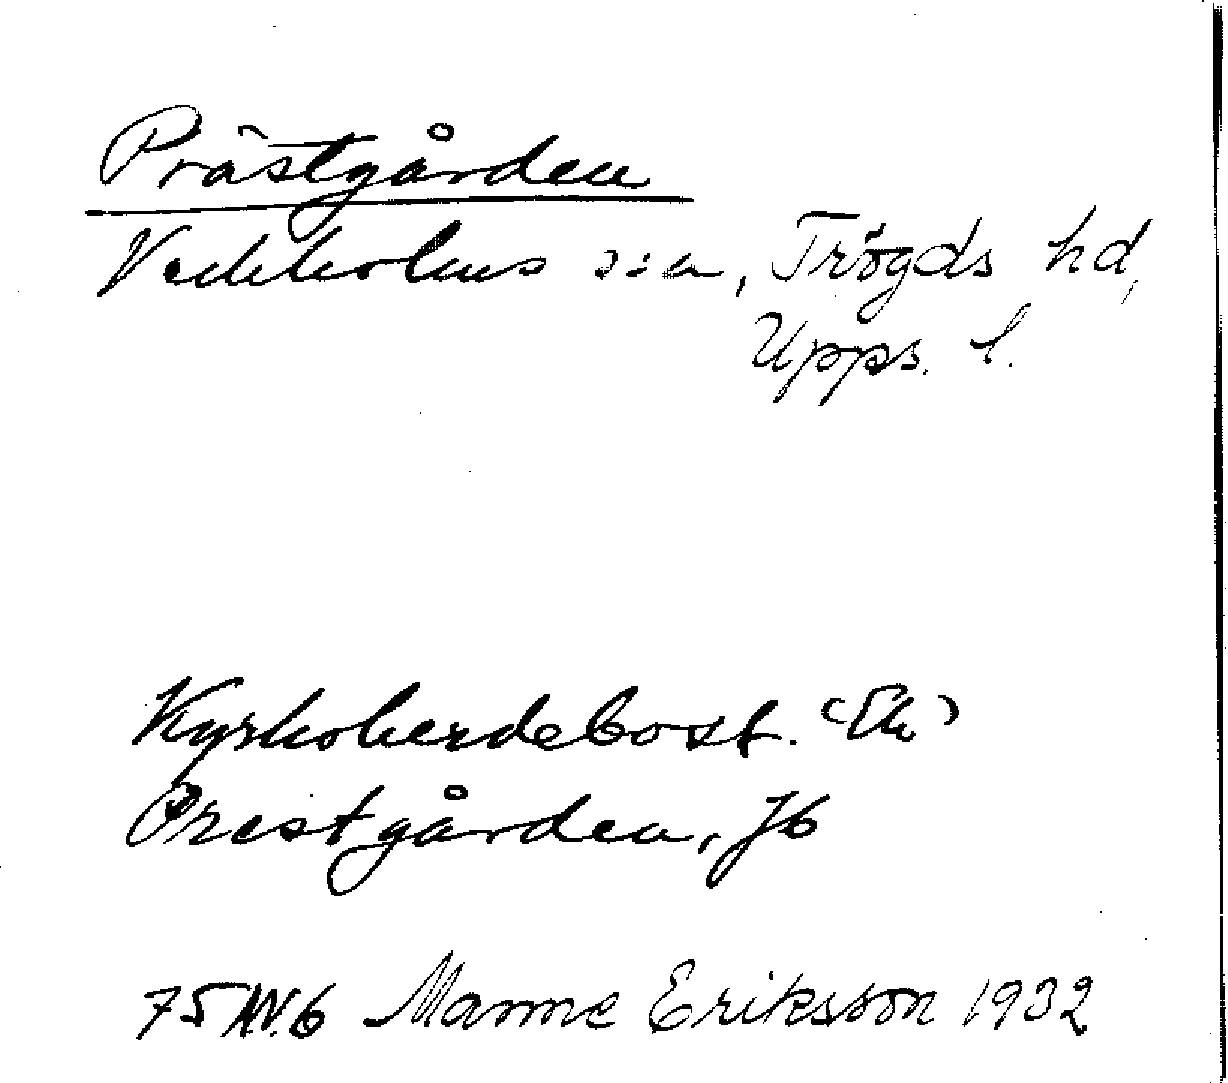 Prästgården
Veckholms s:n, Trögds hd,
Upps. l.
Kyrkoherdebost. (Ek)
Prestgården, Jb
75 NV.6 Manne Eriksson 1932